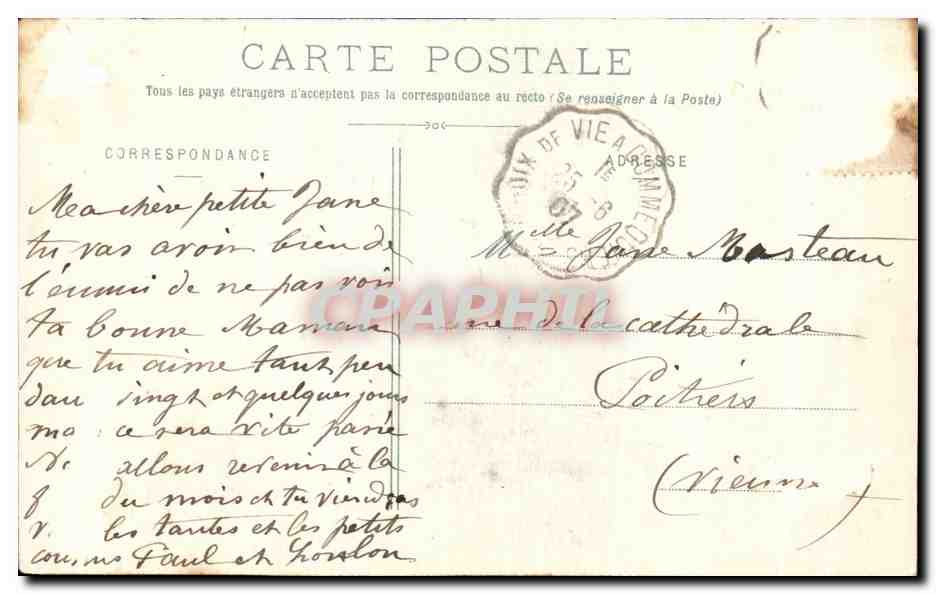 CARTE POSTALE
Tous les pays étrangers n'acceptent pas la correspondance au recto (Se renseigner à la Poste)
CORRESPONDANCE
ADRESSE
CROIX DE VIE A COMMEQUIERS
25 6
07
Ma chère petite Jane
tu vas avoir bien de
l'ennui de ne pas voir
ta bonne Maman
que tu aime tant pen
dan vingt et quelques jours
ma ce sera vite passé
N. allons revenir à la
f du mois et tu viendras
v. les tantes et les petits
cousins Paul et Loulou
Mlle Jane Masteau
rue de la cathédrale
Poitiers
(Vienne)
CPARHTI